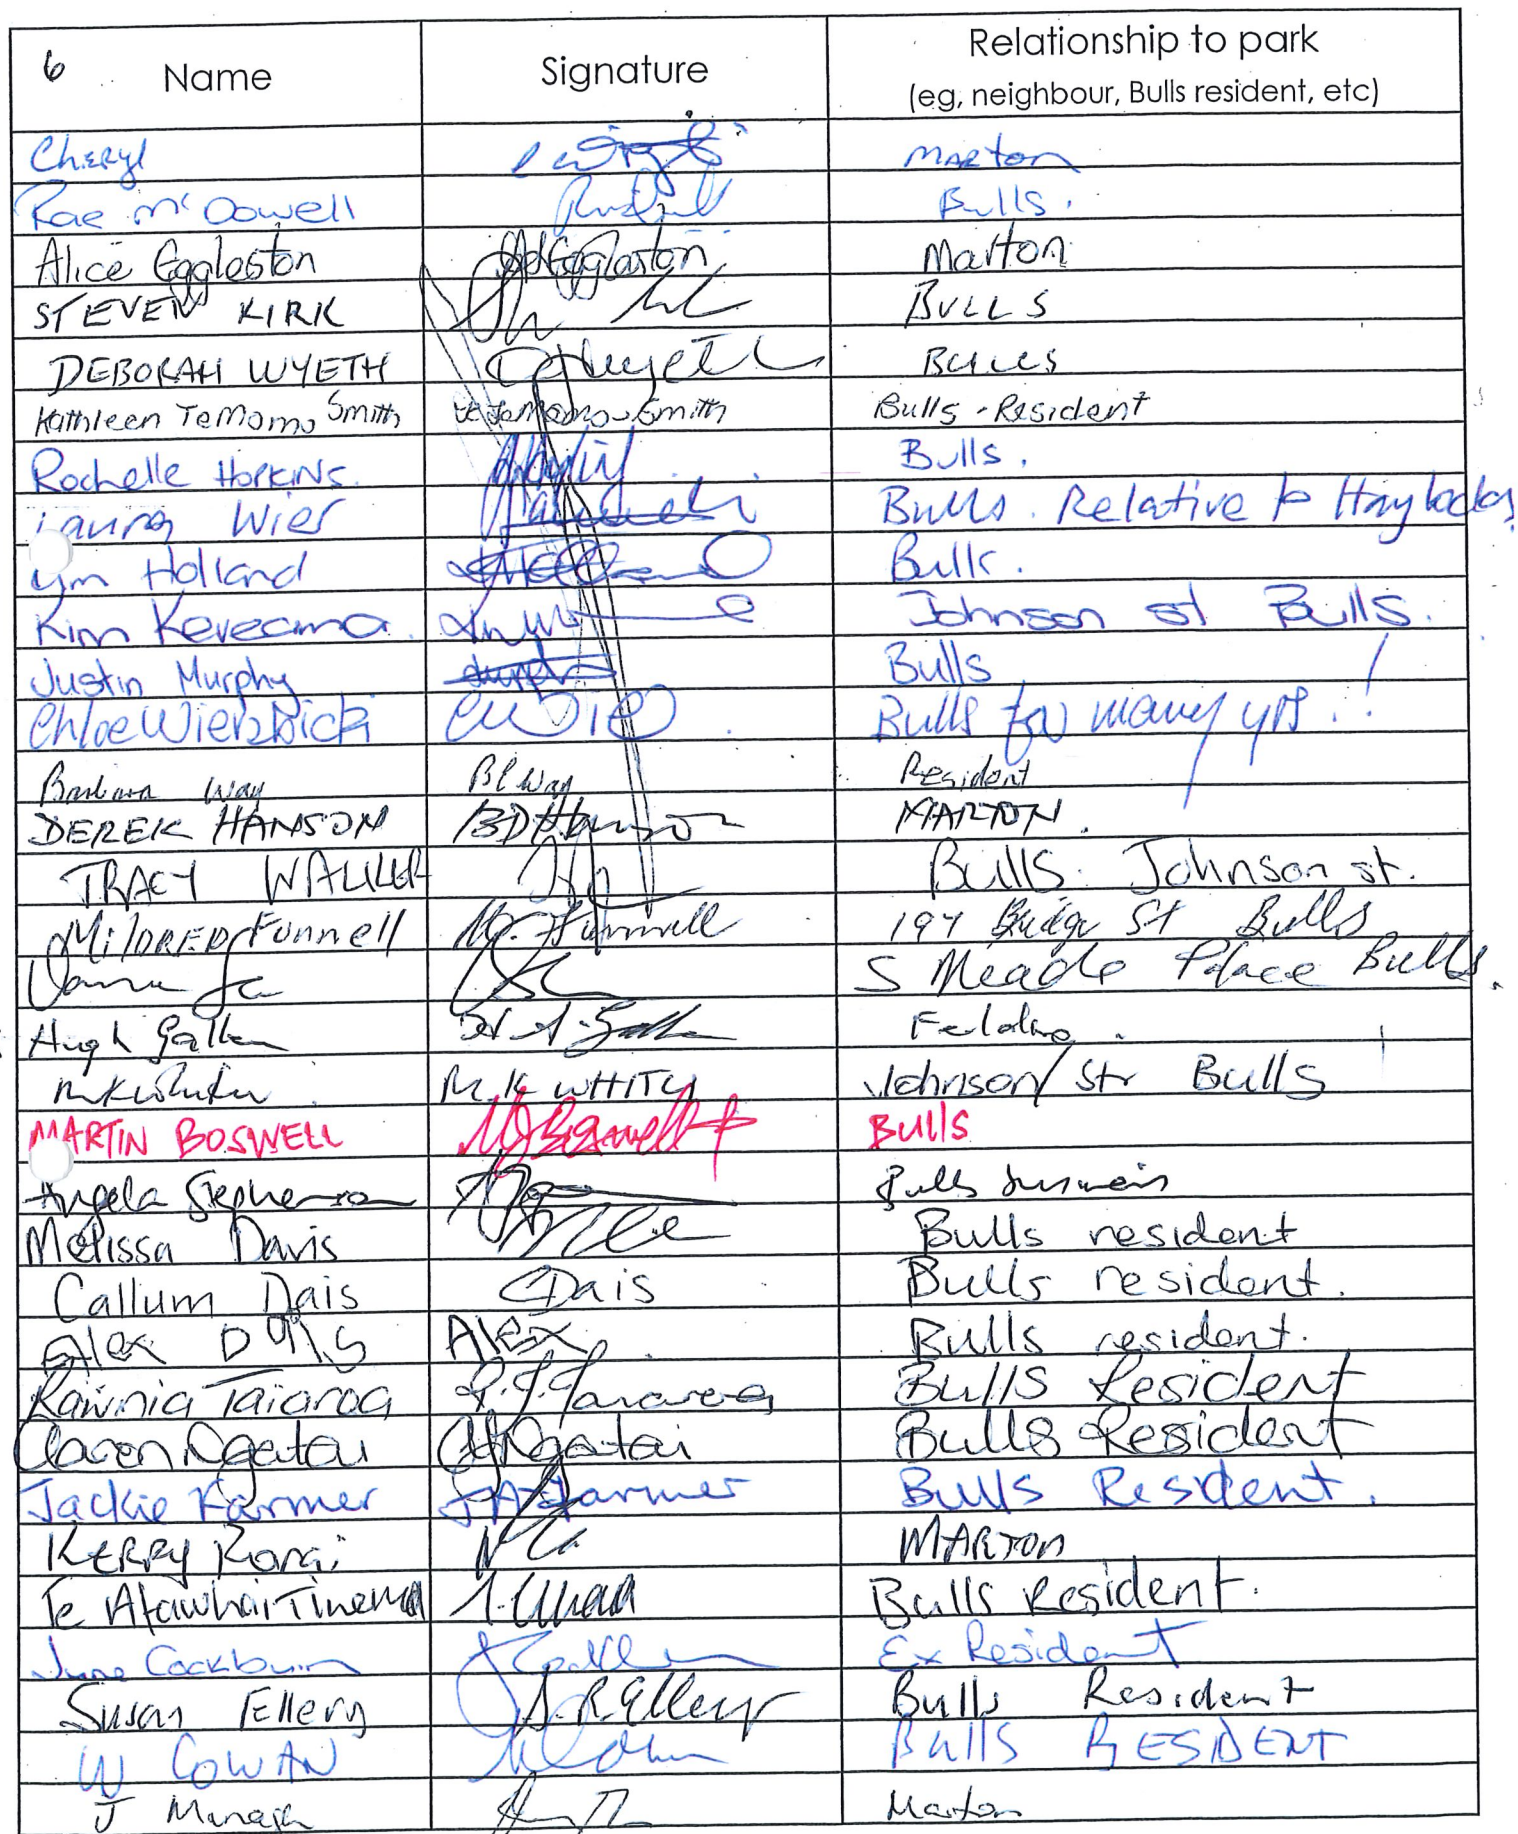 6 Name Signature Relationship to park
(eg, neighbour, Bulls resident, etc)
Cheryl Marton
Rae McDowell Bulls.
Alice Eggleston Eggleston Marton
STEVEN KIRK BULLS
DEBORAH WYETH Wyeth BULLS
Kathleen TeMomo Smith TeMomo-Smith Bulls - Resident
Rochelle HopKiNs. Bulls.
Laura Wier Bulls. Relative to Haylocks
Holland Bulls.
Kim Kereama Johnson st Bulls.
Justin Murphy Bulls
Chloe Wierzbicki Bulls for many yrs!!
Barbara Way Way Resident
DEREK HANSON Hanson MARTON.
TRACY WALKER Bulls. Johnson st.
MilDRED Funnell M. Funnell 197 Bridge St Bulls
5 Meads Place Bulls.
Hugh
M.K WHITU Johnson Str Bulls
MARTIN BOSWELL Boswell Bulls
Angela Stephenson Bulls
Melissa Davis Bulls resident
Callum Dais CDais Bulls resident.
Alex Alex Bulls resident.
Taiaroa Bulls Resident
Ngatai Ngatai Bulls Resident
Jackie Farmer Farmer Bulls Resident.
KERRY MARTON
Te Atawhai Tinema Bulls Resident.
June Cockburn Ex Resident
Susan Ellery S.R Ellery Bulls Resident
W COWAN Bulls RESIDENT
J Marton